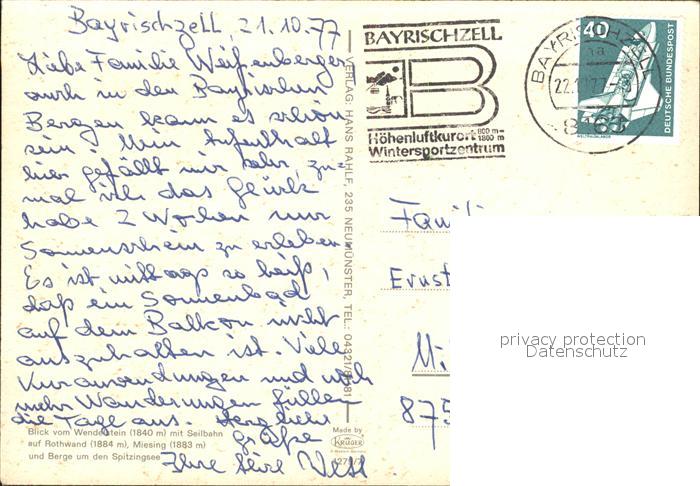 Bayrischzell, 21.10.77
Liebe Familie Weißenberger
auch in den Bayrischen
Bergen kann es schön
sein! Mein Aufenthalt
hier gefällt mir sehr, zu-
mal ich das Glück
habe 2 Wochen nur
Sonnenschein zu erleben.
Es ist mittags so heiß,
daß ein Sonnenbad
auf dem Balkon nicht
auszuhalten ist. Viele
Kuranwendungen und noch
mehr Wanderungen füllen
die Tage aus. Herzliche
Grüße
Ihre
Blick vom Wendelstein (1840 m) mit Seilbahn
auf Rothwand (1884 m), Miesing (1883 m)
und Berge um den Spitzingsee
Made by
KRÜGER
VERLAG: HANS RAHLF, 235 NEUMÜNSTER, TEL.: 04321/
BAYRISCHZELL
B
Höhenluftkurort 800 m -
1800 m
Wintersportzentrum
BAYRISCHZELL
40
DEUTSCHE BUNDESPOST
Famili
Ernst
875
privacy protection
Datenschutz